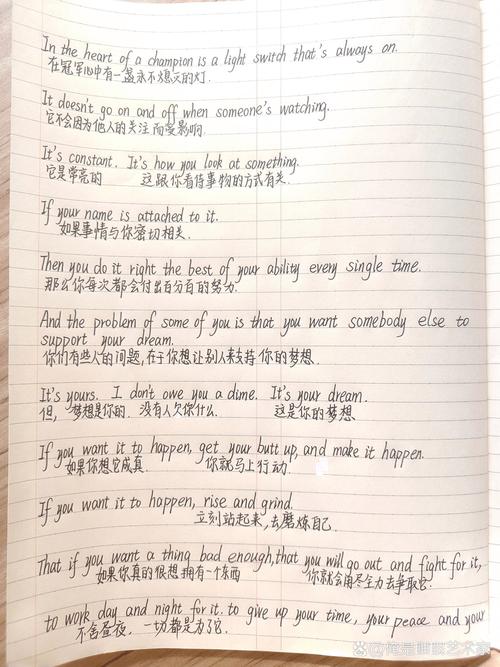 In the heart of a champion is a light switch that's always on.
在冠军心中有一盏永不熄灭的灯.
It doesn't go on and off when someone's watching.
它不会因为他人的关注而受影响.
It's constant. It's how you look at something.
它是常亮的 这跟你看待事物的方式有关.
If your name is attached to it.
如果事情与你密切相关.
Then you do it right the best of your ability every single time.
那么你每次都会付出百分百的努力.
And the problem of some of you is that you want somebody else to
support your dream.
你们有些人的问题,在于你想让别人来支持你的梦想.
It's yours. I don't owe you a dime. It's your dream.
但, 梦想是你的. 没有人欠你什么. 这是你的梦想
If you want it to happen, get your butt up, and make it happen.
如果你想它成真. 你就马上行动.
If you want it to happen, rise and grind.
立刻站起来,去磨炼自己.
That if you want a thing bad enough,that you will go out and fight for it,
如果你真的很想拥有一个东西 你就会用尽全力去争取它.
to work day and night for it. to give up your time, your peace and your
不舍昼夜. 一切都是为了它.